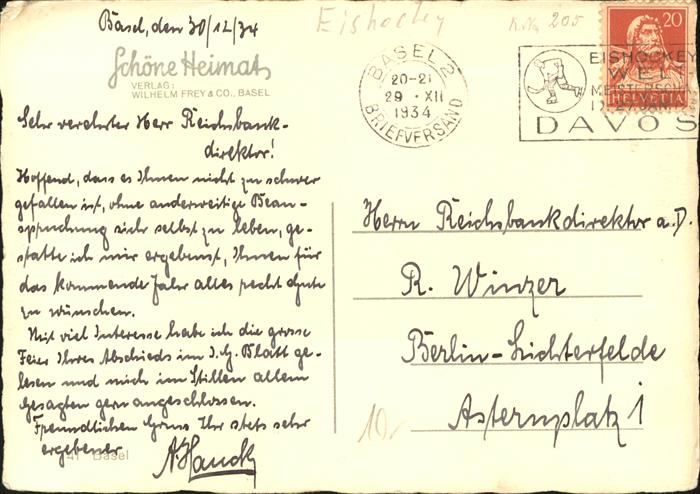 Basel, den 30/12/34
Eishockey
K.No 205
Schöne Heimat
VERLAG:
WILHELM FREY & CO., BASEL
BASEL 2
20-21
29 · XII
1934
BRIEFVERSAND
EISHOCKEY
WEL
MEISTERSCH
DAVOS
20
HELVETIA
Sehr verehrter Herr Reichsbank-
direktor!
Hoffend, dass es Ihnen nicht zu schwer
gefallen ist, ohne anderweitige Bean-
spruchung sich selbst zu leben, ge-
statte ich mir ergebenst, Ihnen für
das kommende Jahr alles recht Gute
zu wünschen.
Mit viel Interesse habe ich die grosse
Feier Ihres Abschieds im I.G. Blatt ge-
lesen und mich im Stillen allem
Gesagten gern angeschlossen.
Freundlichen Gruss Ihr stets sehr
ergebener
A. Hauck
41 Basel
Herrn Reichsbankdirektor a.D.
R. Winzer
Berlin-Lichterfelde
Asternplatz 1
10.-